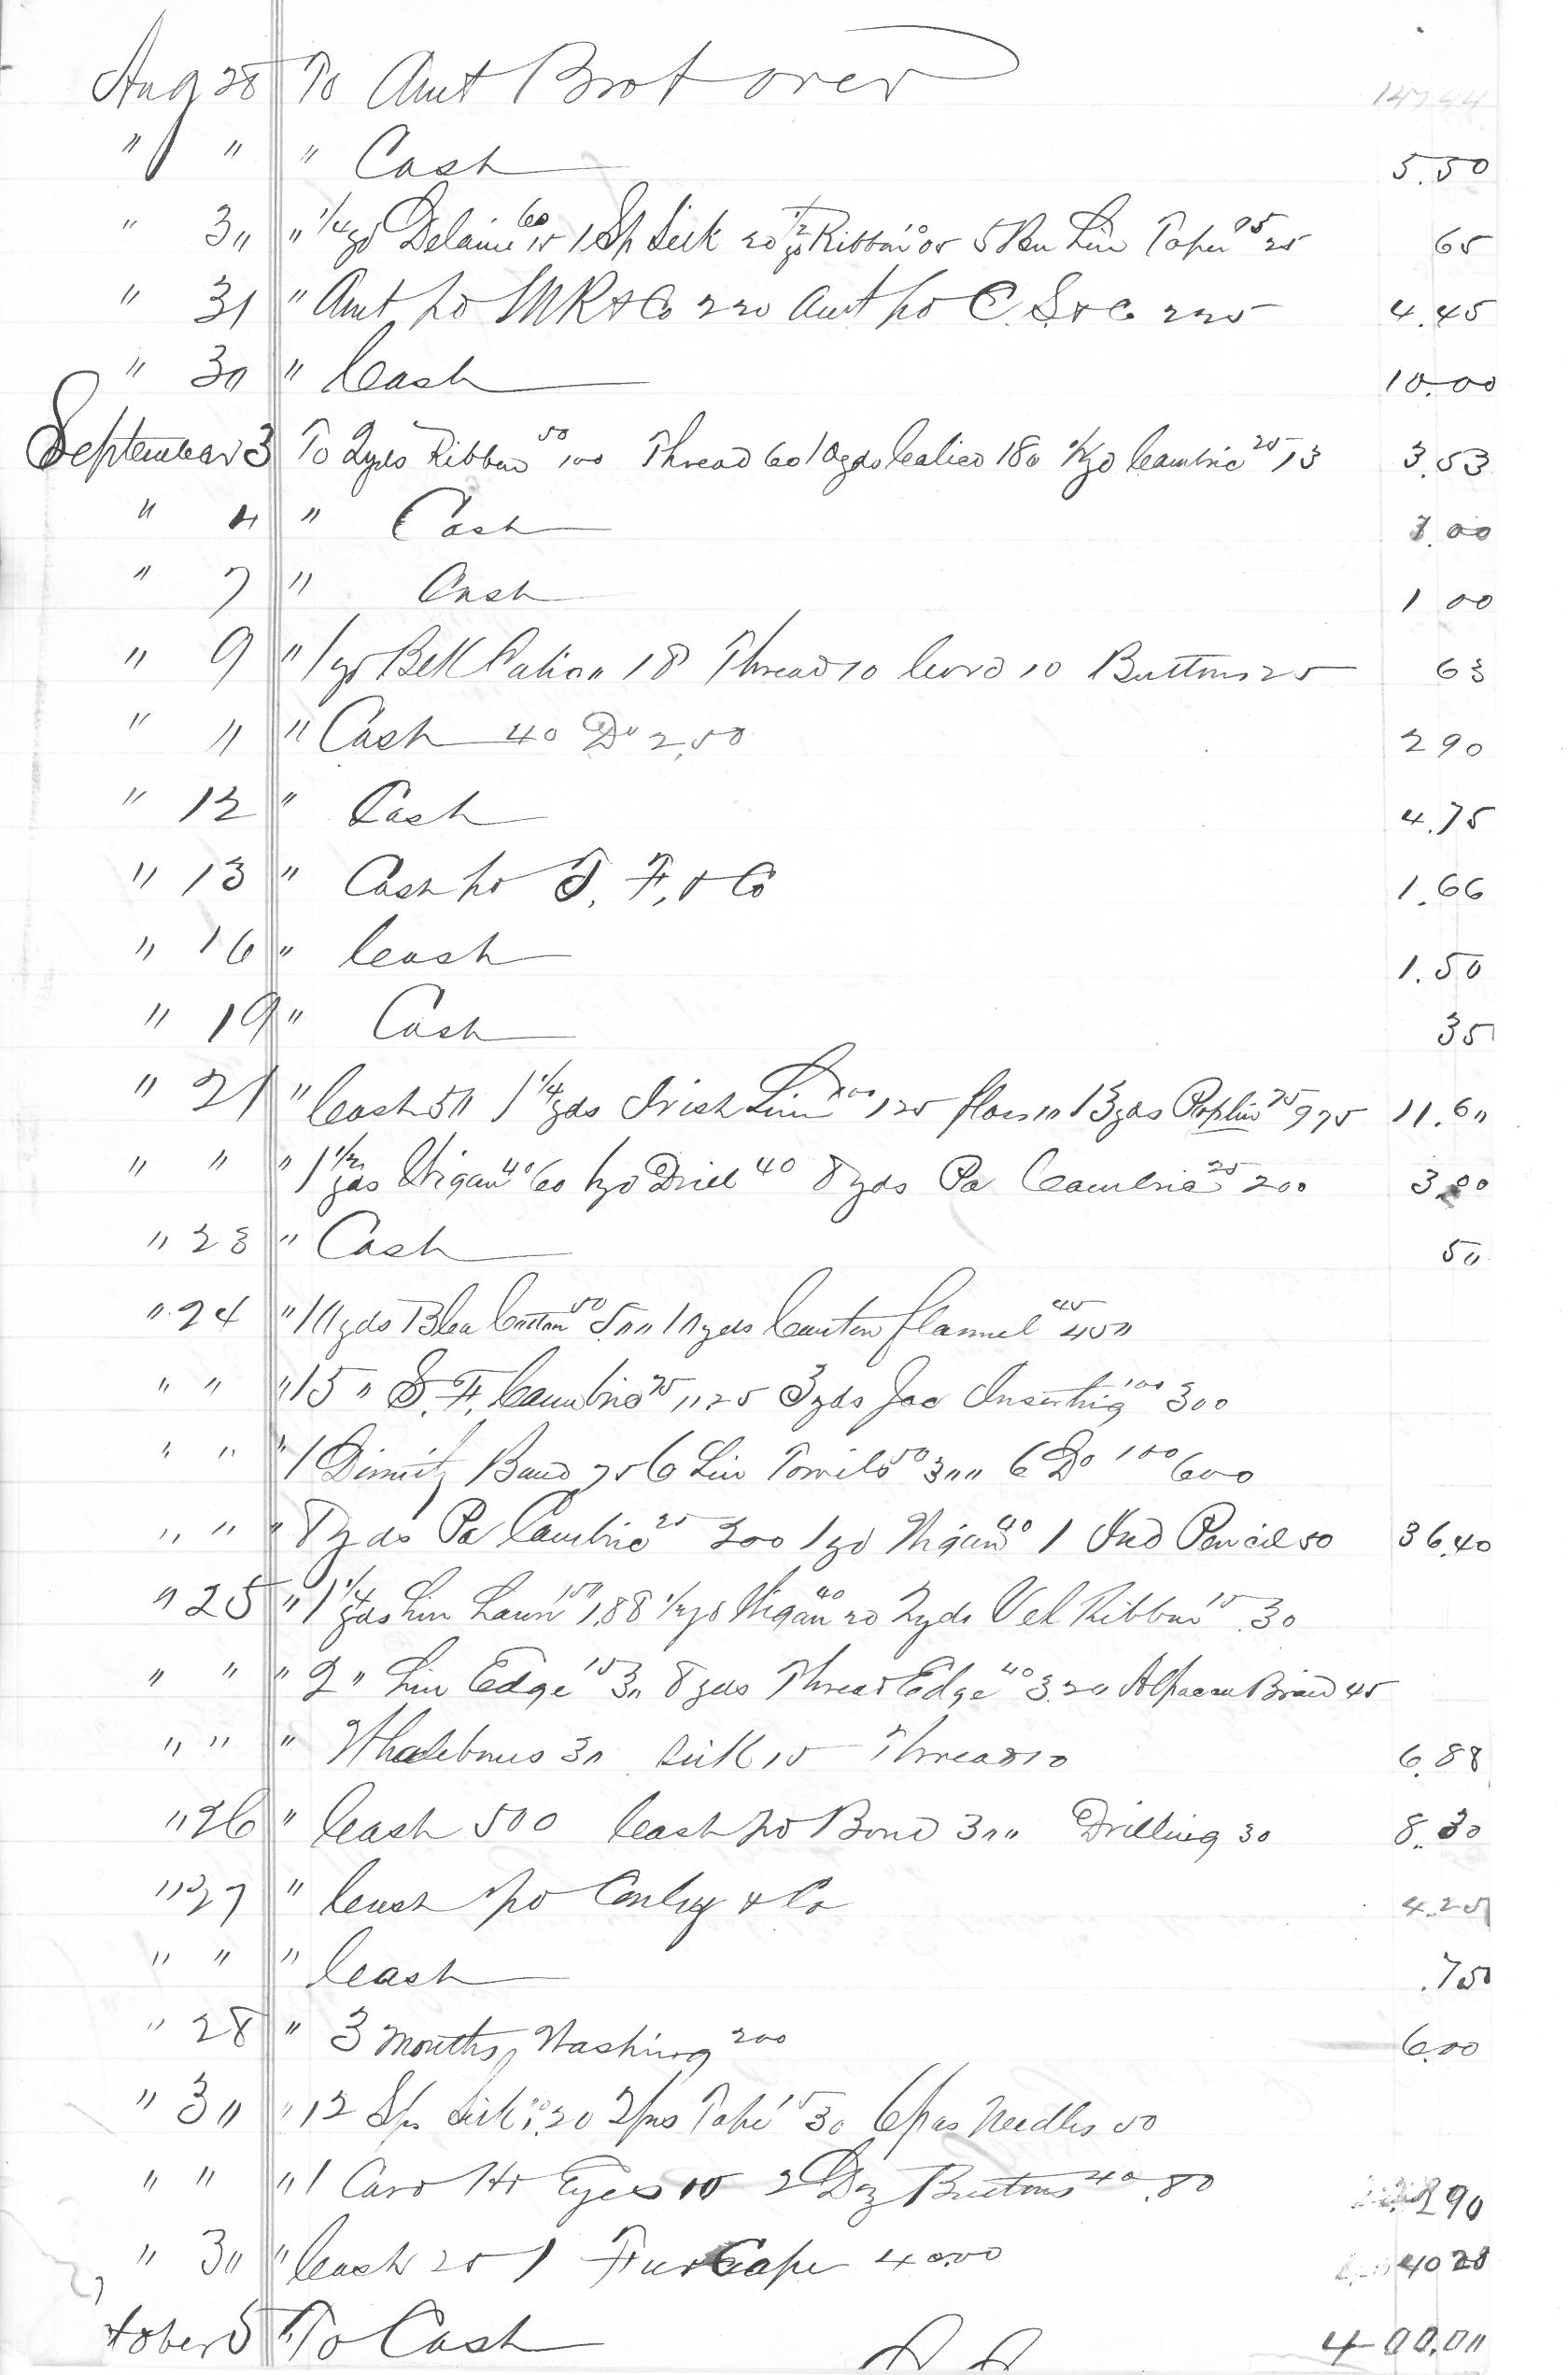 Aug 28 To Amt Brot over 147 44
" " " Cash 5.50
" 30 " 1/4 yd Delaine 60 15 1 Sp Silk 20 1/2 yd Ribbon 10 05 5 Lin Tape 05 25 65
" 31 " Amt pd M R & Co 2 20 Amt pd C. S. & Co 2 25 4.45
" 30 " Cash 10.00
September 3 To 2 yds Ribbon 50 1 00 Thread 60 10 yds Calico 180 1/2 yd Cambric 25 13 3.53
" 4 " Cash 3.00
" 7 " Cash 1 00
" 9 " 1 yd Calico 18 Thread 10 Cord 10 Buttons 25 63
" 11 " Cash 40 Do 2.50 2 90
" 12 " Cash 4.75
" 13 " Cash pd J. F. & Co 1.66
" 16 " Cash 1.50
" 19 " Cash 35
" 21 " Cash 50 1 1/4 yds Irish Linn 100 125 floss 10 13 yds Poplin 75 975 11.60
" " " 1 1/2 yds Wigan 40 60 1 yd Drill 40 8 yds Pa Cambric 25 200 3.00
" 23 " Cash 50
" 24 " 10 yds Blea Cotton 50 500 10 yds Canton flannel 45 450
" " " 15 " S. F. Cambric 75 11.25 3 yds Jac Inserting 100 300
" " " 1 Dimity Band 75 6 Lin Towels 50 300 6 Do 100 600
" " " 8 yds Pa Cambric 25 200 1 yd Wigan 40 1 Ind Pencil 50 36.40
" 25 " 1 1/4 yds Linn Lawn 150 1.88 1/2 yd Wigan 40 20 2 yds Vel Ribbon 15 .30
" " " 2 " Lin Edge 15 30 8 yds Thread Edge 40 3.20 Alpacca Braid 45
" " " Whalebones 30 Silk 15 Thread 10 6.88
" 26 " Cash 500 Cash pd Bond 300 Drilling 30 8.30
" 27 " Cash pd Conley & Co 4.25
" " " Cash .75
" 28 " 3 Months Washing 200 6.00
" 30 " 12 Sps Silk 10 1.20 2 pcs Tape 15 30 6 pas Needles 50
" " " 1 Card H & Eyes 10 2 Doz Buttons 40 .80 2 90
" 30 " Cash 25 1 Fur Cape 40.00 40 25
tober 5 To Cash 400.00